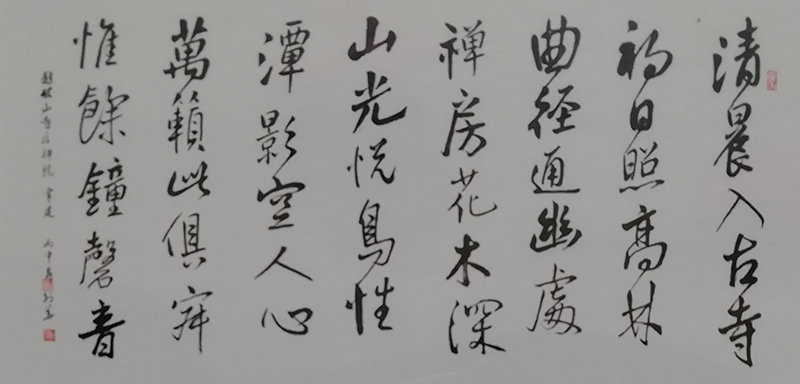 清晨入古寺
初日照高林
曲径通幽處
禅房花木深
山光悦鳥性
潭影空人心
萬籟此俱寂
惟餘鐘磬音
題破山寺后禅院 常建 丙申